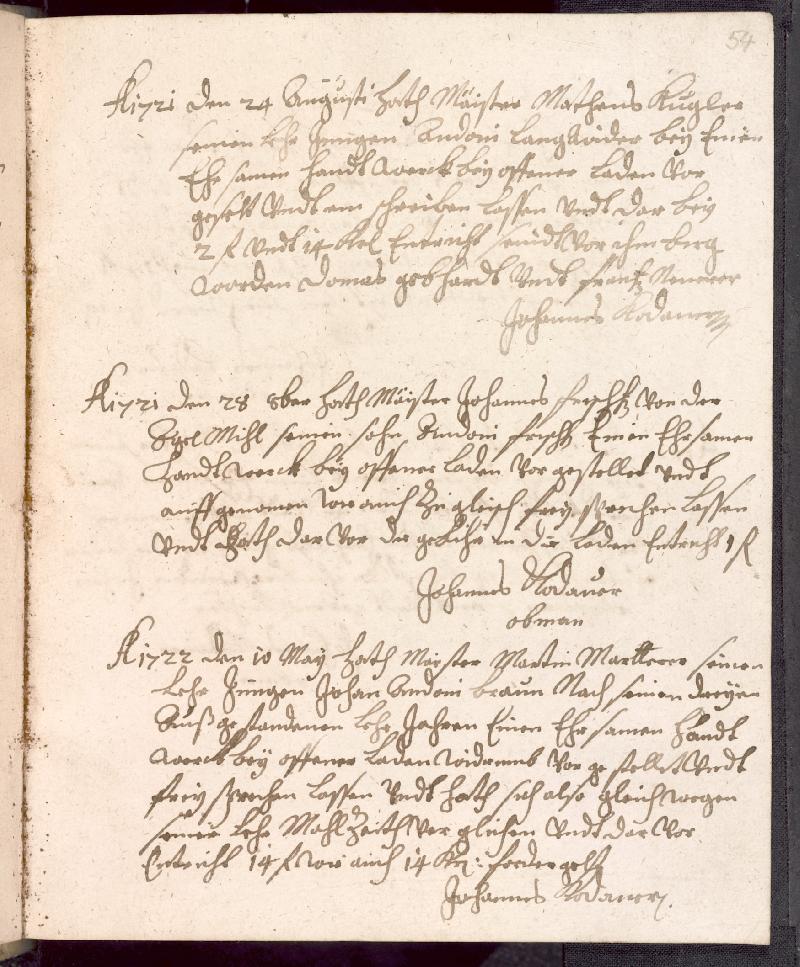 54
A 1721 den 24 Augusti hath Maister Matheus Kugler
seinen Lehr Jungen Andoni Langkoider bey Einen
Ehr samen Handt werck bey offener Laden vor
gestelt Vndt ein schreiben Lassen Vndt dar bey
2 f Vndt 14 Kr Entricht seindt vor ihm berg
worden Domas gebhardt Vndt frantz
Johannes Rodauer
A 1721 den 28 8ber hath Maister Johannes frischh von der
Mihl seinen sohn Andoni frischh Einen Ehrsamen
Handt werck bey offener Laden vor gestellet Vndt
auff genomen wie auch zu gleich frey sprechen Lassen
Vndt hath dar vor die gebihr in die Laden Entricht 1 f
Johannes Rodauer
obman
A 1722 den 10 May hath Meister Martin Martterer seinen
Lehr Jungen Johan Andoni braun Nach seinen dreyen
Auß gestandenen Lehr Jahren Einen Ehr samen Handt
werck bey offener Laden widrumb vor gestellet Vndt
frey sprechen Lassen Vndt hath sich also gleich wegen
seiner Lehr Mahlzeith ver glichen Vndt dar vor
Entricht 14 f wie auch 14 Kr: feder gelt
Johannes Rodauer